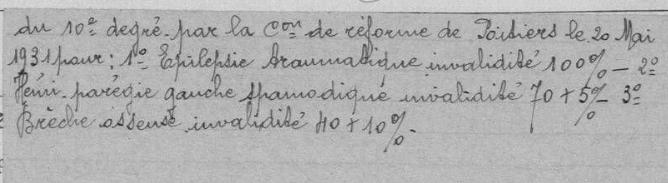 du 10e degré. par la Con de réforme de Poitiers le 20 Mai
1931 pour : 1o Epilepsie traumatique invalidité 100% — 2o
Hémi-parégie gauche spamodique invalidité 70 + 5% 3o
Brèche osseuse invalidité 40 + 10%.